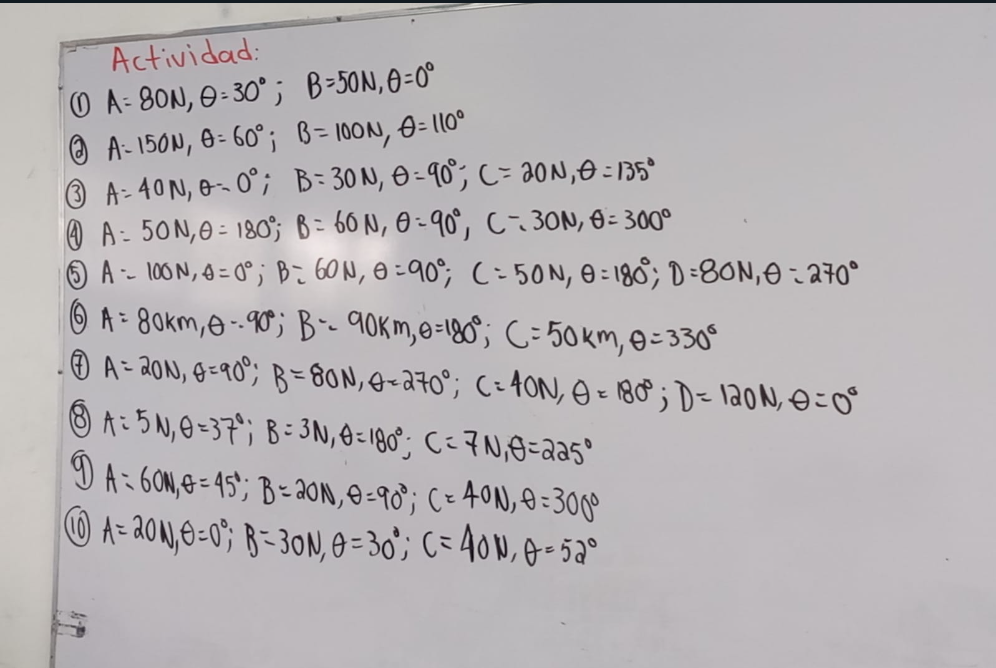 Actividad:
① A=80N, θ=30°; B=50N, θ=0°
② A=150N, θ=60°; B=100N, θ=110°
③ A=40N, θ=0°; B=30N, θ=90°; C=20N, θ=135°
④ A=50N, θ=180°; B=60N, θ=90°, C=30N, θ=300°
⑤ A=100N, θ=0°; B=60N, θ=90°; C=50N, θ=180°; D=80N, θ=270°
⑥ A=80km, θ=90°; B=90Km, θ=180°; C=50km, θ=330°
⑦ A=20N, θ=90°; B=80N, θ=270°; C=40N, θ=180°; D=120N, θ=0°
⑧ A=5N, θ=37°; B=3N, θ=180°; C=7N, θ=225°
⑨ A=60N, θ=45°; B=20N, θ=90°; C=40N, θ=300°
⑩ A=20N, θ=0°; B=30N, θ=30°; C=40N, θ=52°